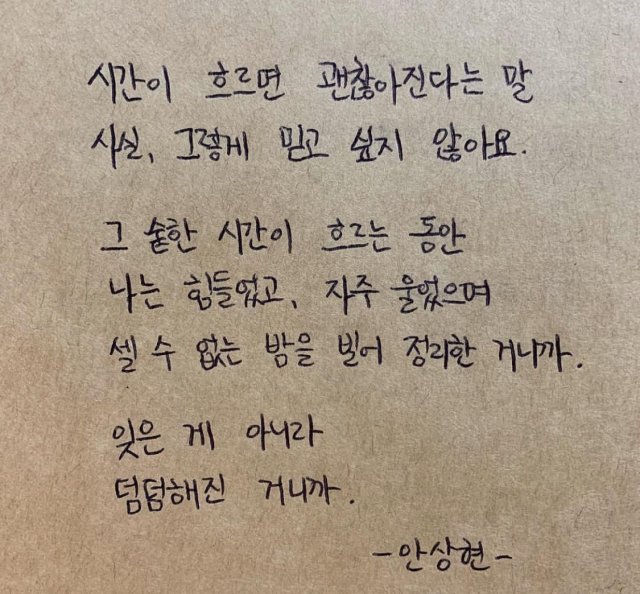 시간이 흐르면 괜찮아진다는 말
사실, 그렇게 믿고 싶지 않아요.
그 숱한 시간이 흐르는 동안
나는 힘들었고, 자주 울었으며
셀 수 없는 밤을 빌어 정리한 거니까.
잊은 게 아니라
덤덤해진 거니까.
-안상현-